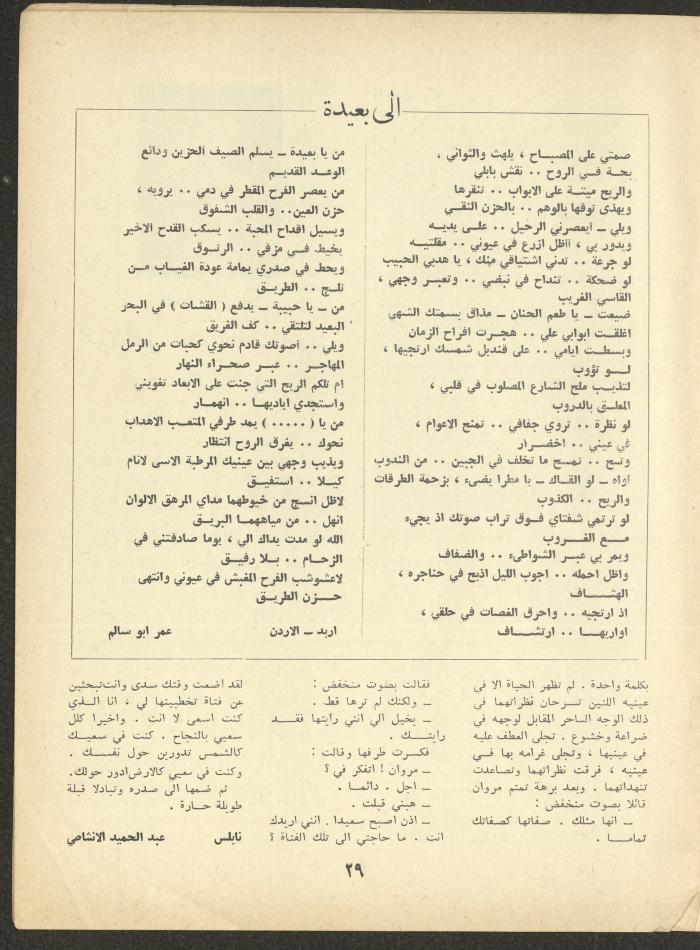 الى بعيدة
صمتي على المصبـاح ، يلهث والثواني ،
بحـة فـي الروح .. نقش بابلي
والريح ميتـة على الابواب .. تنقرها
ويهذي توقها بالوهم .. بالحزن النقـي
ويلي ـ أيعصرني الرحيل .. علـى يديـه
ويدور بي ، أأظل ازرع في عيوني .. مقلتيـه
لو جرعة .. تدني اشتياقي منك ، يا هدبي الحبيب
لو ضحكة .. تنداح في نبضي .. وتعبـر وجهي ،
القاسي الغريب
ضيعت ـ يا طعم الحنان ـ مذاق بسمتك الشهي
اغلقـت ابوابي علي .. هجـرت افراح الزمان
وبسطت ايامي .. على قنديل شمسك ارتجيها ،
لـو تؤوب
لتذيـب ملح الشارع المصلوب في قلبي ،
المعلـق بالدروب
لو نظرة .. تروي جفافي .. تمنح الاعوام ،
في عيني .. اخضـرار
وتسح .. تمسح ما تخلف في الجبين .. من الندوب
أواه ـ لو القاك ـ يا مطرا يضيء ، بزحمة الطرقات
والريح .. الكذوب
لو ترتمي شفتاي فـوق تراب صوتك اذ يجيء
مـع الغـروب
ويمر بي عبـر الشواطىء .. والضفاف
واظل احمله .. اجوب الليل اذبح في حناجره ،
الهتــاف
اذ ارتجيه .. واحرق الغصات في حلقي ،
اواريهـا .. ارتشــاف
من يا بعيدة ـ يسلم الصيف الحزين ودائع
الوعـد القديـم
من يعصر الفرح المقطر في دمي .. يرويه ،
حزن العين.. والقلب الشفوق
ويسيل اقداح المحبة .. يسكب القدح الاخير
يخيط فـي مزقي .. الرتـوق
ويحط في صدري يمامة عودة الغيـاب مـن
ثلـج .. الطريـق
من ـ يا حبيبة ـ يدفع ( القشات ) في البحر
البعيد لتلتقي .. كف الغريق
ويلي .. أصوتك قادم نحوي كحبات من الرمل
المهاجـر .. عبـر صحـراء النهار
ام تلكم الريح التي جنت على الابعاد تغويني
واستجدي اياديهـا .. انهمـار
من يا ( ..... ) يمد طرفي المتعـب الاهداب
نحوك .. يغرق الروح انتظار
ويذيب وجهي بين عينيك المرطبة الاسى لانام
كيـلا .. استفيـق
لاظل انسج من خيوطهما مداي المرهق الالوان
انهل .. من مياههمـا البريـق
الله لو مدت يداك الي ، يوما صادفتني في
الزحـام .. بـلا رفيـق
لاعشوشب الفرح المغبش في عيوني وانتهى
حـزن الطريـق
اربد ـ الاردن عمر ابو سالم
بكلمة واحدة . لم تظهر الحياة الا في
عينيه اللتين تسرحان فنظراتهما في
ذلك الوجه الساحر المقابل لوجهه في
ضراعة وخشوع . تجلى العطف عليه
في عينيها ، وتجلى غرامه بها فـي
عينيه ، فرقت نظراتهما وتصاعدت
تنهداتهما . وبعد برهة تمتم مروان
قائلا بصوت منخفض :
ـ انها مثلك . صفاتها كصفاتك
تمامـا .
فقالت بصوت منخفض :
ـ ولكنك لم ترها قط .
ـ يخيل الي انني رأيتها فقـد
رأيتـك .
فكسرت طرفها وقالت :
ـ مروان ! اتفكر في ؟
ـ اجل . دائمـا .
ـ هبني قبلت .
ـ اذن اصبح سعيدا . انني اريدك
انت . ما حاجتي الى تلك الفتاة ؟
لقد أضعت وقتك سدى وانت تبحثين
عن فتاة تخطبينها لي ، انا الـذي
كنت اسعى لا انت . واخيرا كلل
سعيي بالنجاح . كنت في سعيـك
كالشمس تدورين حول نفسـك .
وكنت في سعيي كالارض ادور حولك.
ثم ضمها الى صدره وتبادلا قبلة
طويلة حـارة .
نابلس عبد الحميد الانشاصي
٢٩